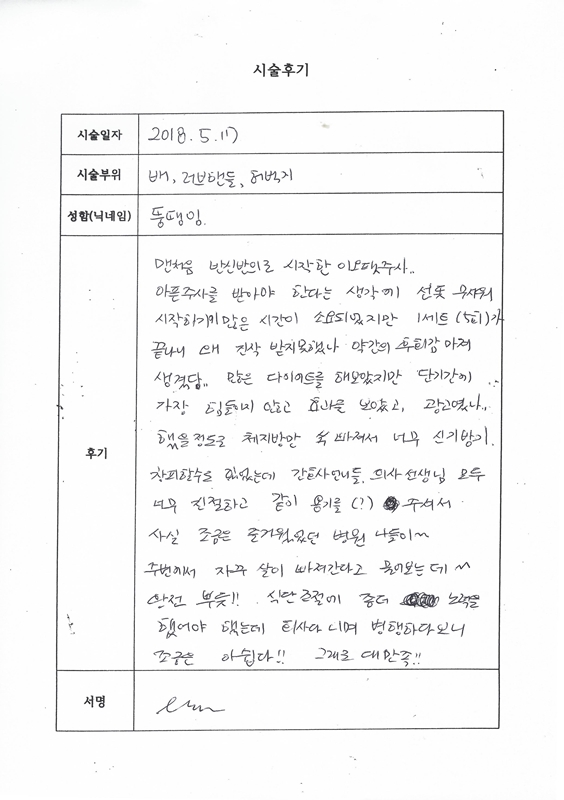 시술후기
시술일자 2018. 5. 17
시술부위 배, 러브핸들, 허벅지
성함(닉네임) 뚱땡이.
후기
맨처음 반신반의로 시작한 이오팻주사..
아픈주사를 받아야 한다는 생각에 선뜻 무서워
시작하기까지 많은 시간이 소요되었지만 1세트(5회)가
끝나니 왜 진작 받지못했나 약간의 후회감 마저
생겼답.. 많은 다이어트를 해보았지만 단기간에
가장 힘들이지 않고 효과를 보았고, 광고였나..
했을정도로 체지방만 쏙 빠져서 너무 신기방기.
창피할수도 있었는데 간호사언니들, 의사선생님 모두
너무 친절하고 같이 용기를(?) 주셔서
사실 조금은 즐거웠었던 병원 나들이~
주변에서 자꾸 살이 빠져간다고 물어보는데~
완전 뿌듯!! 식단조절에 좀더 노력을
했어야 했는데 회사다니며 병행하다보니
조금은 아쉽다!! 그래도 대만족!!
서명